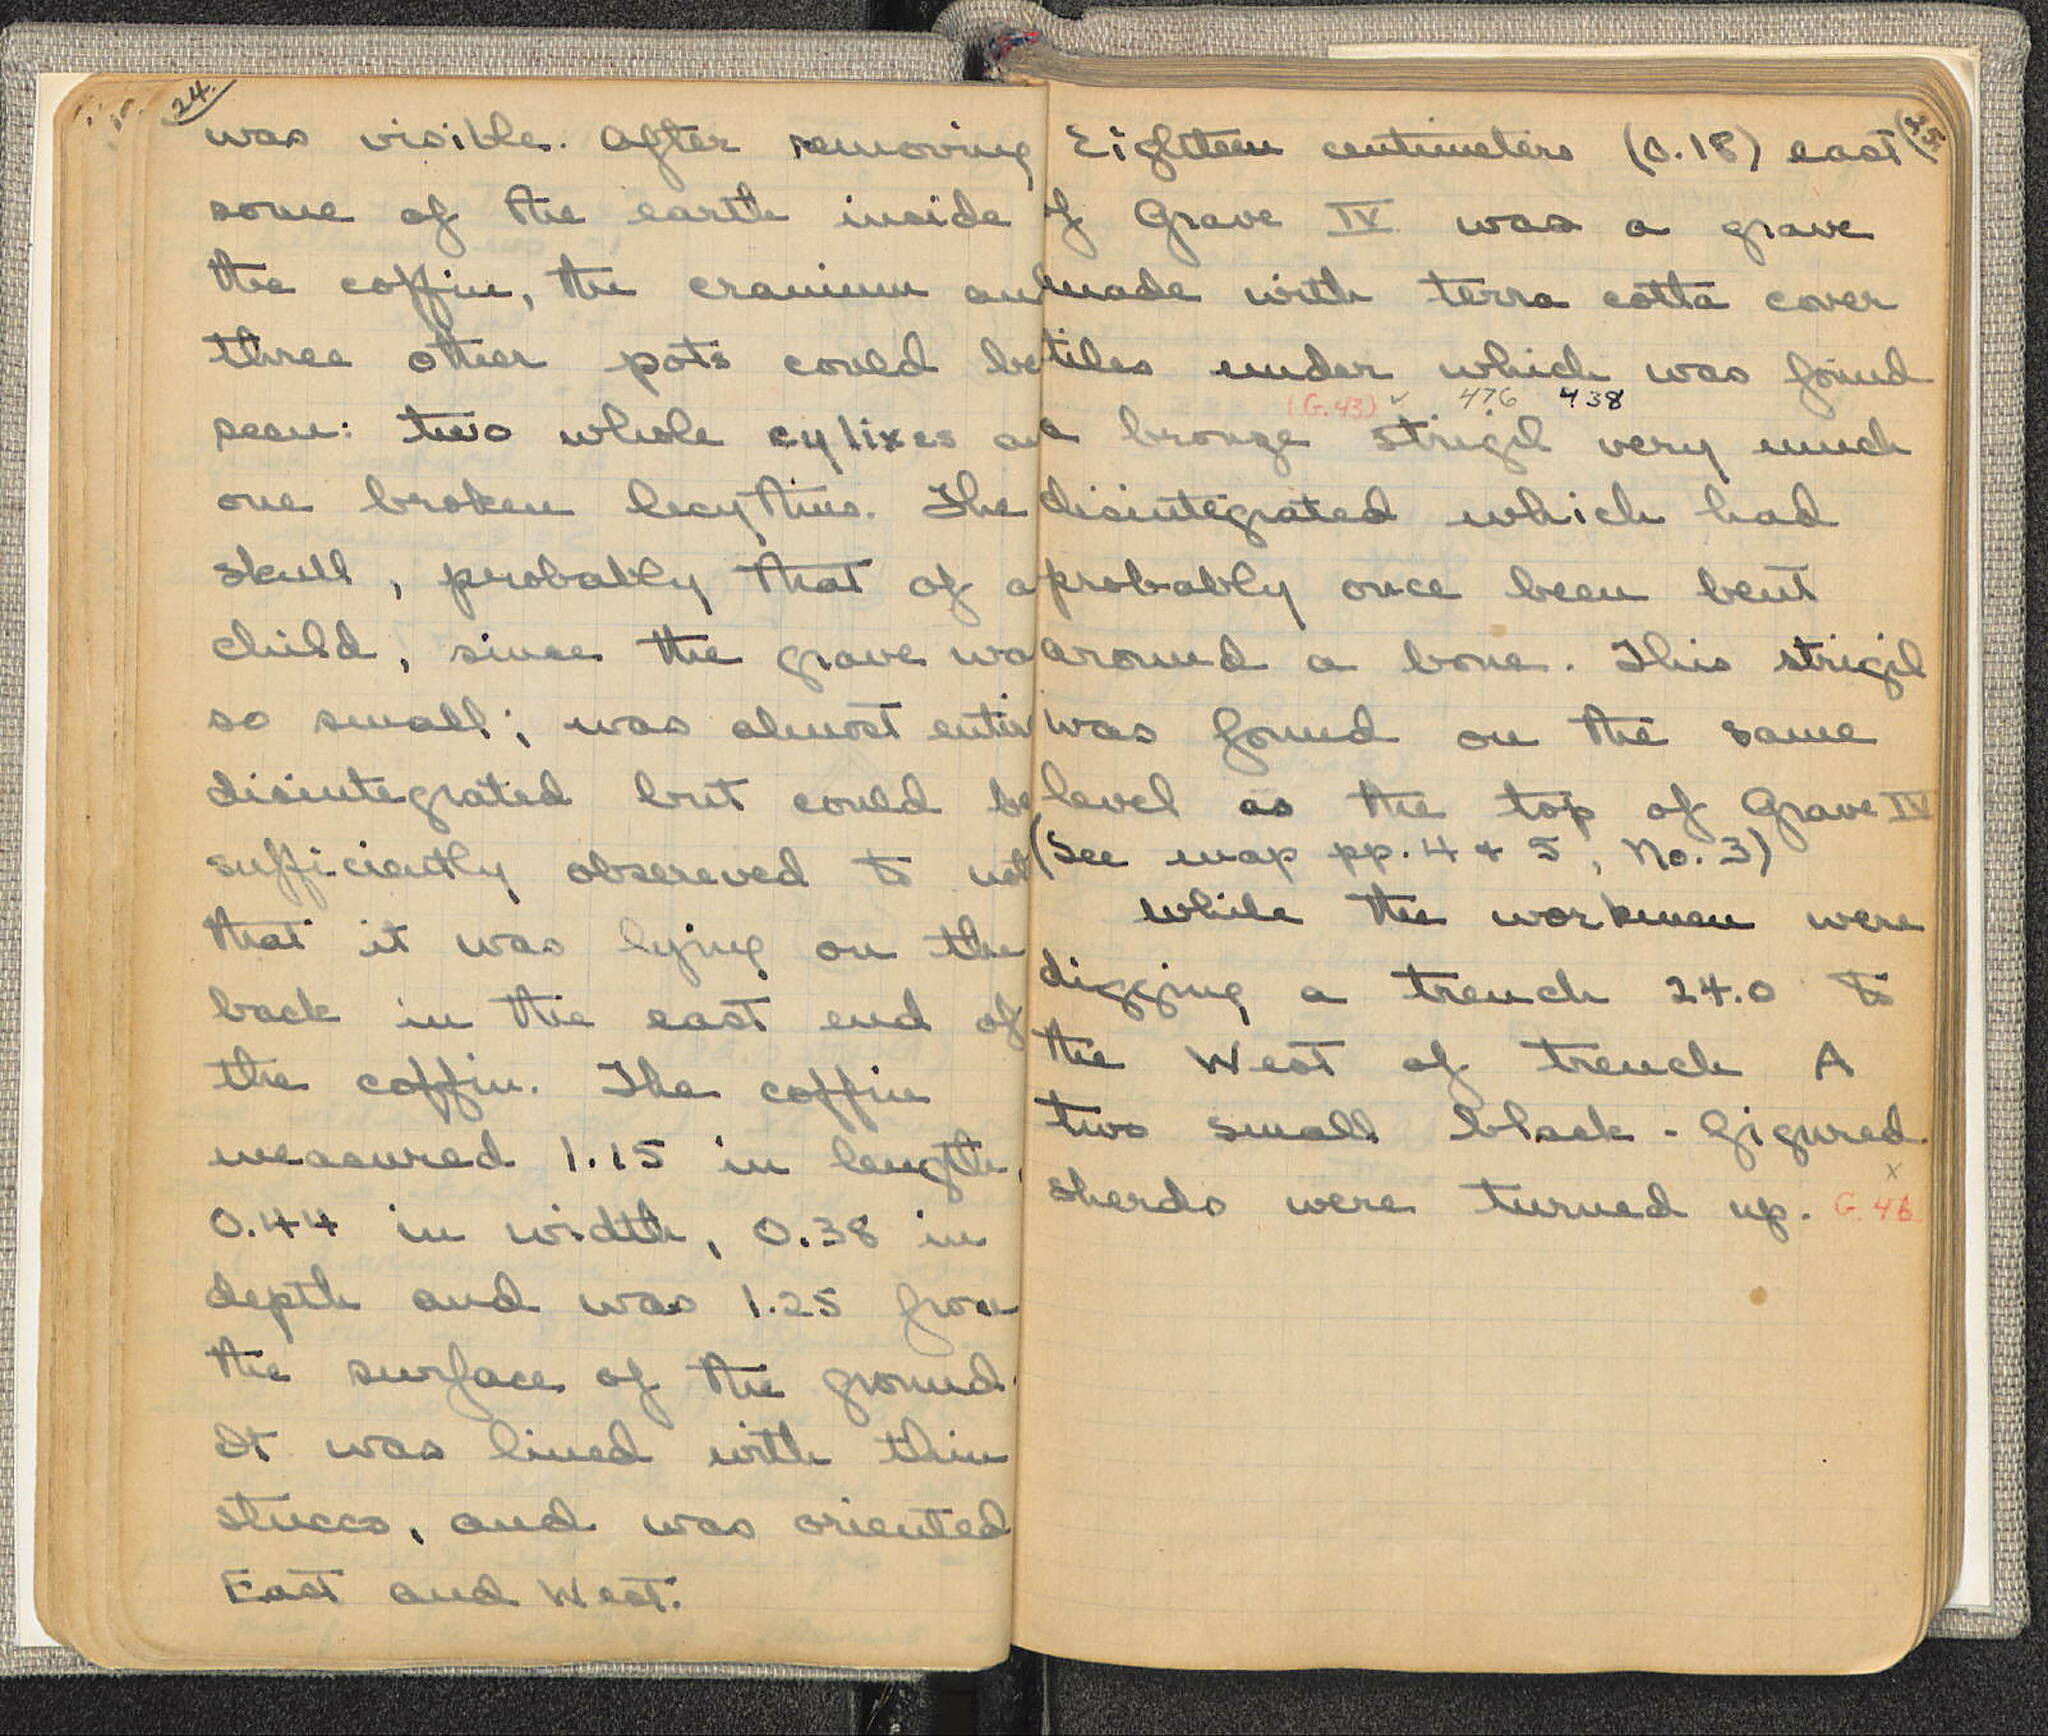 24.
was visible. After removing
some of the earth inside
the coffin, the cranium an
three other pots could be
seen: two whole cylixes a
one broken lecythus. The
skull, probably that of a
child, since the grave wa
so small; was almost entir
disintegrated but could be
sufficiently obsereved to not
that it was lying on the
back in the east end of
the coffin. The coffin
measured 1.15 in length,
0.44 in width, 0.38 in
depth and was 1.25 from
the surface of the ground.
It was lined with thin
stucco, and was oriented
East and West.
25
Eighteen centimeters (0.18) east
of Grave IV was a grave
made with terra cotta cover
tiles under which was found
(G.43) ✓ 476 438
a bronze strigil very much
disintegrated which had
probably once been bent
around a bone. This strigil
was found on the same
level as the top of Grave IV
(See map pp. 4 + 5, No. 3)
While the workmen were
digging a trench 24.0 to
the West of trench A
two small black-figured
x
sherds were turned up. G.46